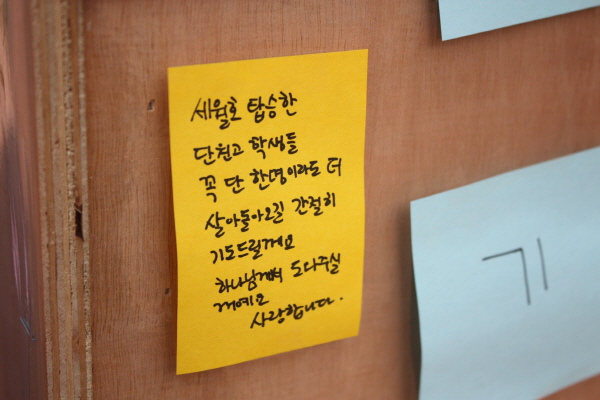 세월호 탑승한
단원고 학생들
꼭 단 한명이라도 더
살아돌아오길 간절히
기도드릴께요
하나님께서 도와주실
꺼예요
사랑합니다.
기